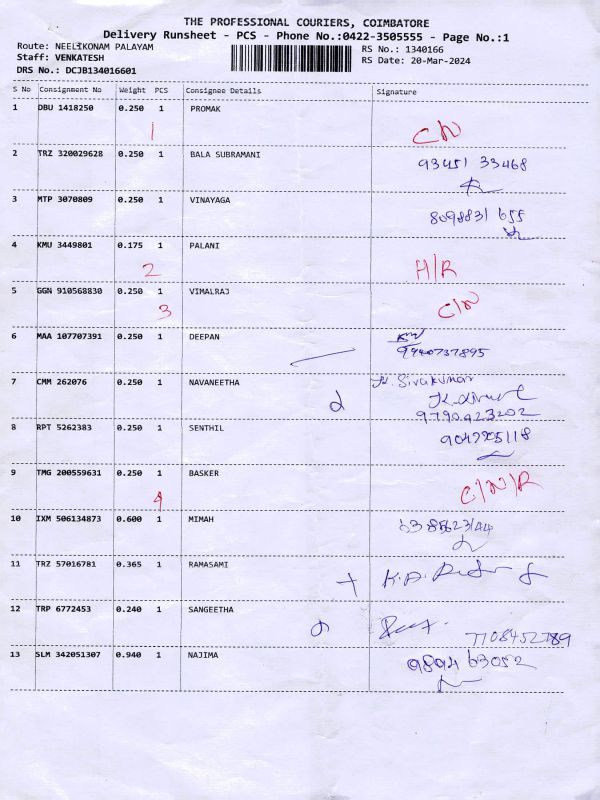 THE PROFESSIONAL COURIERS, COIMBATORE
Delivery Runsheet - PCS - Phone No.:0422-3505555 - Page No.:1
Route: NEELIKONAM PALAYAM RS No.: 1340166
Staff: VENKATESH RS Date: 20-Mar-2024
DRS No.: DCJB134016601
S No Consignment No Weight PCS Consignee Details Signature
1 DBU 1418250 0.250 1 PROMAK
1 C/N
2 TRZ 320029628 0.250 1 BALA SUBRAMANI
93451 33468
3 MTP 3070809 0.250 1 VINAYAGA
8098831 655
4 KMU 3449801 0.175 1 PALANI
2 H/R
5 GGN 910568830 0.250 1 VIMALRAJ
3 C/N
6 MAA 107707391 0.250 1 DEEPAN
9940737895
7 CMM 262076 0.250 1 NAVANEETHA
K. Sivakumar
9790423202
8 RPT 5262383 0.250 1 SENTHIL
9 TMG 200559631 0.250 1 BASKER
4 C/N/R
10 IXM 506134873 0.600 1 MIMAH
11 TRZ 57016781 0.365 1 RAMASAMI
12 TRP 6772453 0.240 1 SANGEETHA
7708452789
13 SLM 342051307 0.940 1 NAJIMA
9894 63052